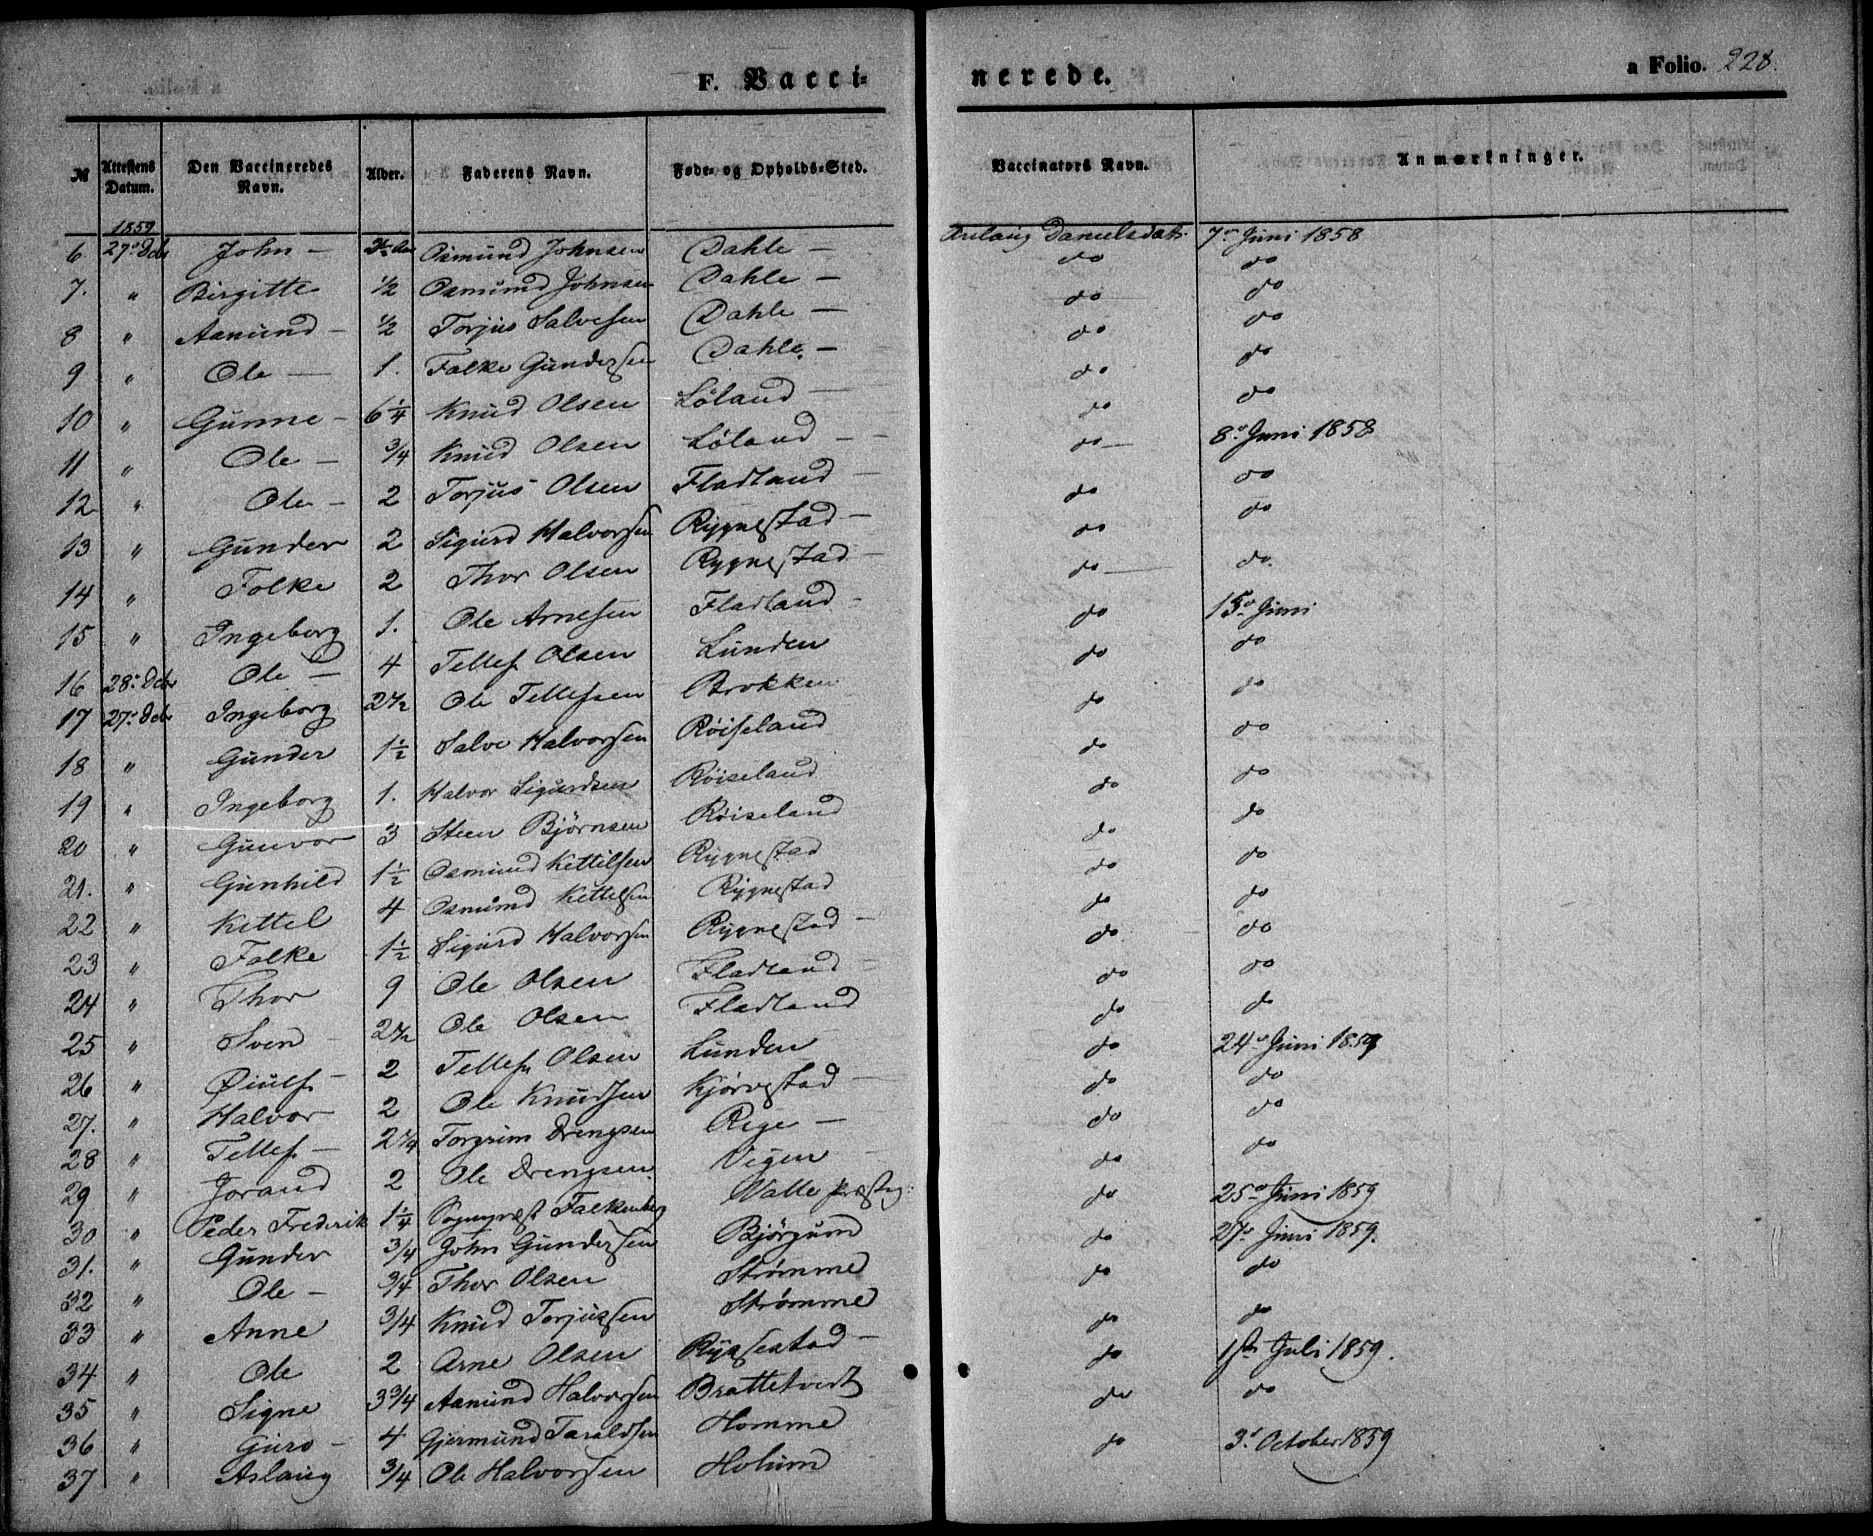 F. Vacci- nerede. a Folio. 228.
№ | Attestens Datum. | Den Vaccineredes Navn. | Alder. | Faderens Navn. | Føde- og Opholds-Sted. | Vaccinators Navn. | Anmærkninger.
1859
6 27de Dcbr John - Osmund Johnsen Dahle - Danielsdatr. 7de Juni 1858
7. " Birgitte 1/2 Osmund Johnsen Dahle - do do
8 " Aamund - 1/2 Torjus Salvesen Dahle - do do
9 " Ole - 1. Falke Gundersen Dahle - do do
10 " Gunne - 6 1/4 Knud Olsen Løland - do do
11 " Ole - 3/4 Knud Olsen Løland - do 8de Juni 1858
12 " Ole - 2 Torjus Olsen Fladland - do do
13 " Gunder 2 Sigurd Halvorsen Rygnestad - do do
14 " Folke 2 Thor Olsen Rygnestad - do do.
15 " Ingeborg 1. Ole Arnesen Fladland - do 15de Juni
16 28de Dcbr Ole - 4 Tellef Olsen Lunden do do
17 27de Dcbr Ingeborg 2 1/2 Ole Tellefsen Brokken do do
18 " Gunder 1 1/2 Salve Halvorsen Røiseland do do
19 " Ingeborg 1. Halvor Sigurdsen Røiseland do do
20 " Gunvor 3 Steen Bjørnsen Røiseland do do
21. " Gunhild 1 1/2 Osmund Kettilsen Rygnestad do do
22 " Kettel 4 Osmund Kettelsen Rygnestad do do
23 " Falke 1 1/2 Sigurd Halvorsen Rygnestad - do do
24 " Thor 9 Ole Olsen Fladland - do do
25 " Sven - 2 1/2 Ole Olsen Fladland do do
26 " Øiulf - 2 Tellef Olsen Lunden do 24de Juni 1859
27. " Halvor 2 Ole Knudsen Kjørvestad - do do
28 " Tellef - 2 1/4 Torgrim Drengsen Rige - do do
29 " Jorand 2 Ole Drengsen. Vigen - do do
30 " Peder Frederik 1 1/4 Sognepræst Falkenberg Valle Præstg: do 25de Juni 1859
31. " Gunder 3/4 John Gundersen Bjørgum do 27de Juni 1859.
32 " Ole - 3/4 Thor Olsen Strømme do do
33 " Anne 3/4 Knud Torjussen Strømme do do
34 " Ole 2 Arne Olsen Ryssestad - do 1ste Juli 1859.
35 " Signe 3 3/4 Aamund Halvorsen Brottetveit do do
36 " Guro - 4 Gjermund Taraldsen Homme do 3de October 1859
37 " Aslaug 3/4 Ole Halvorsen Holum